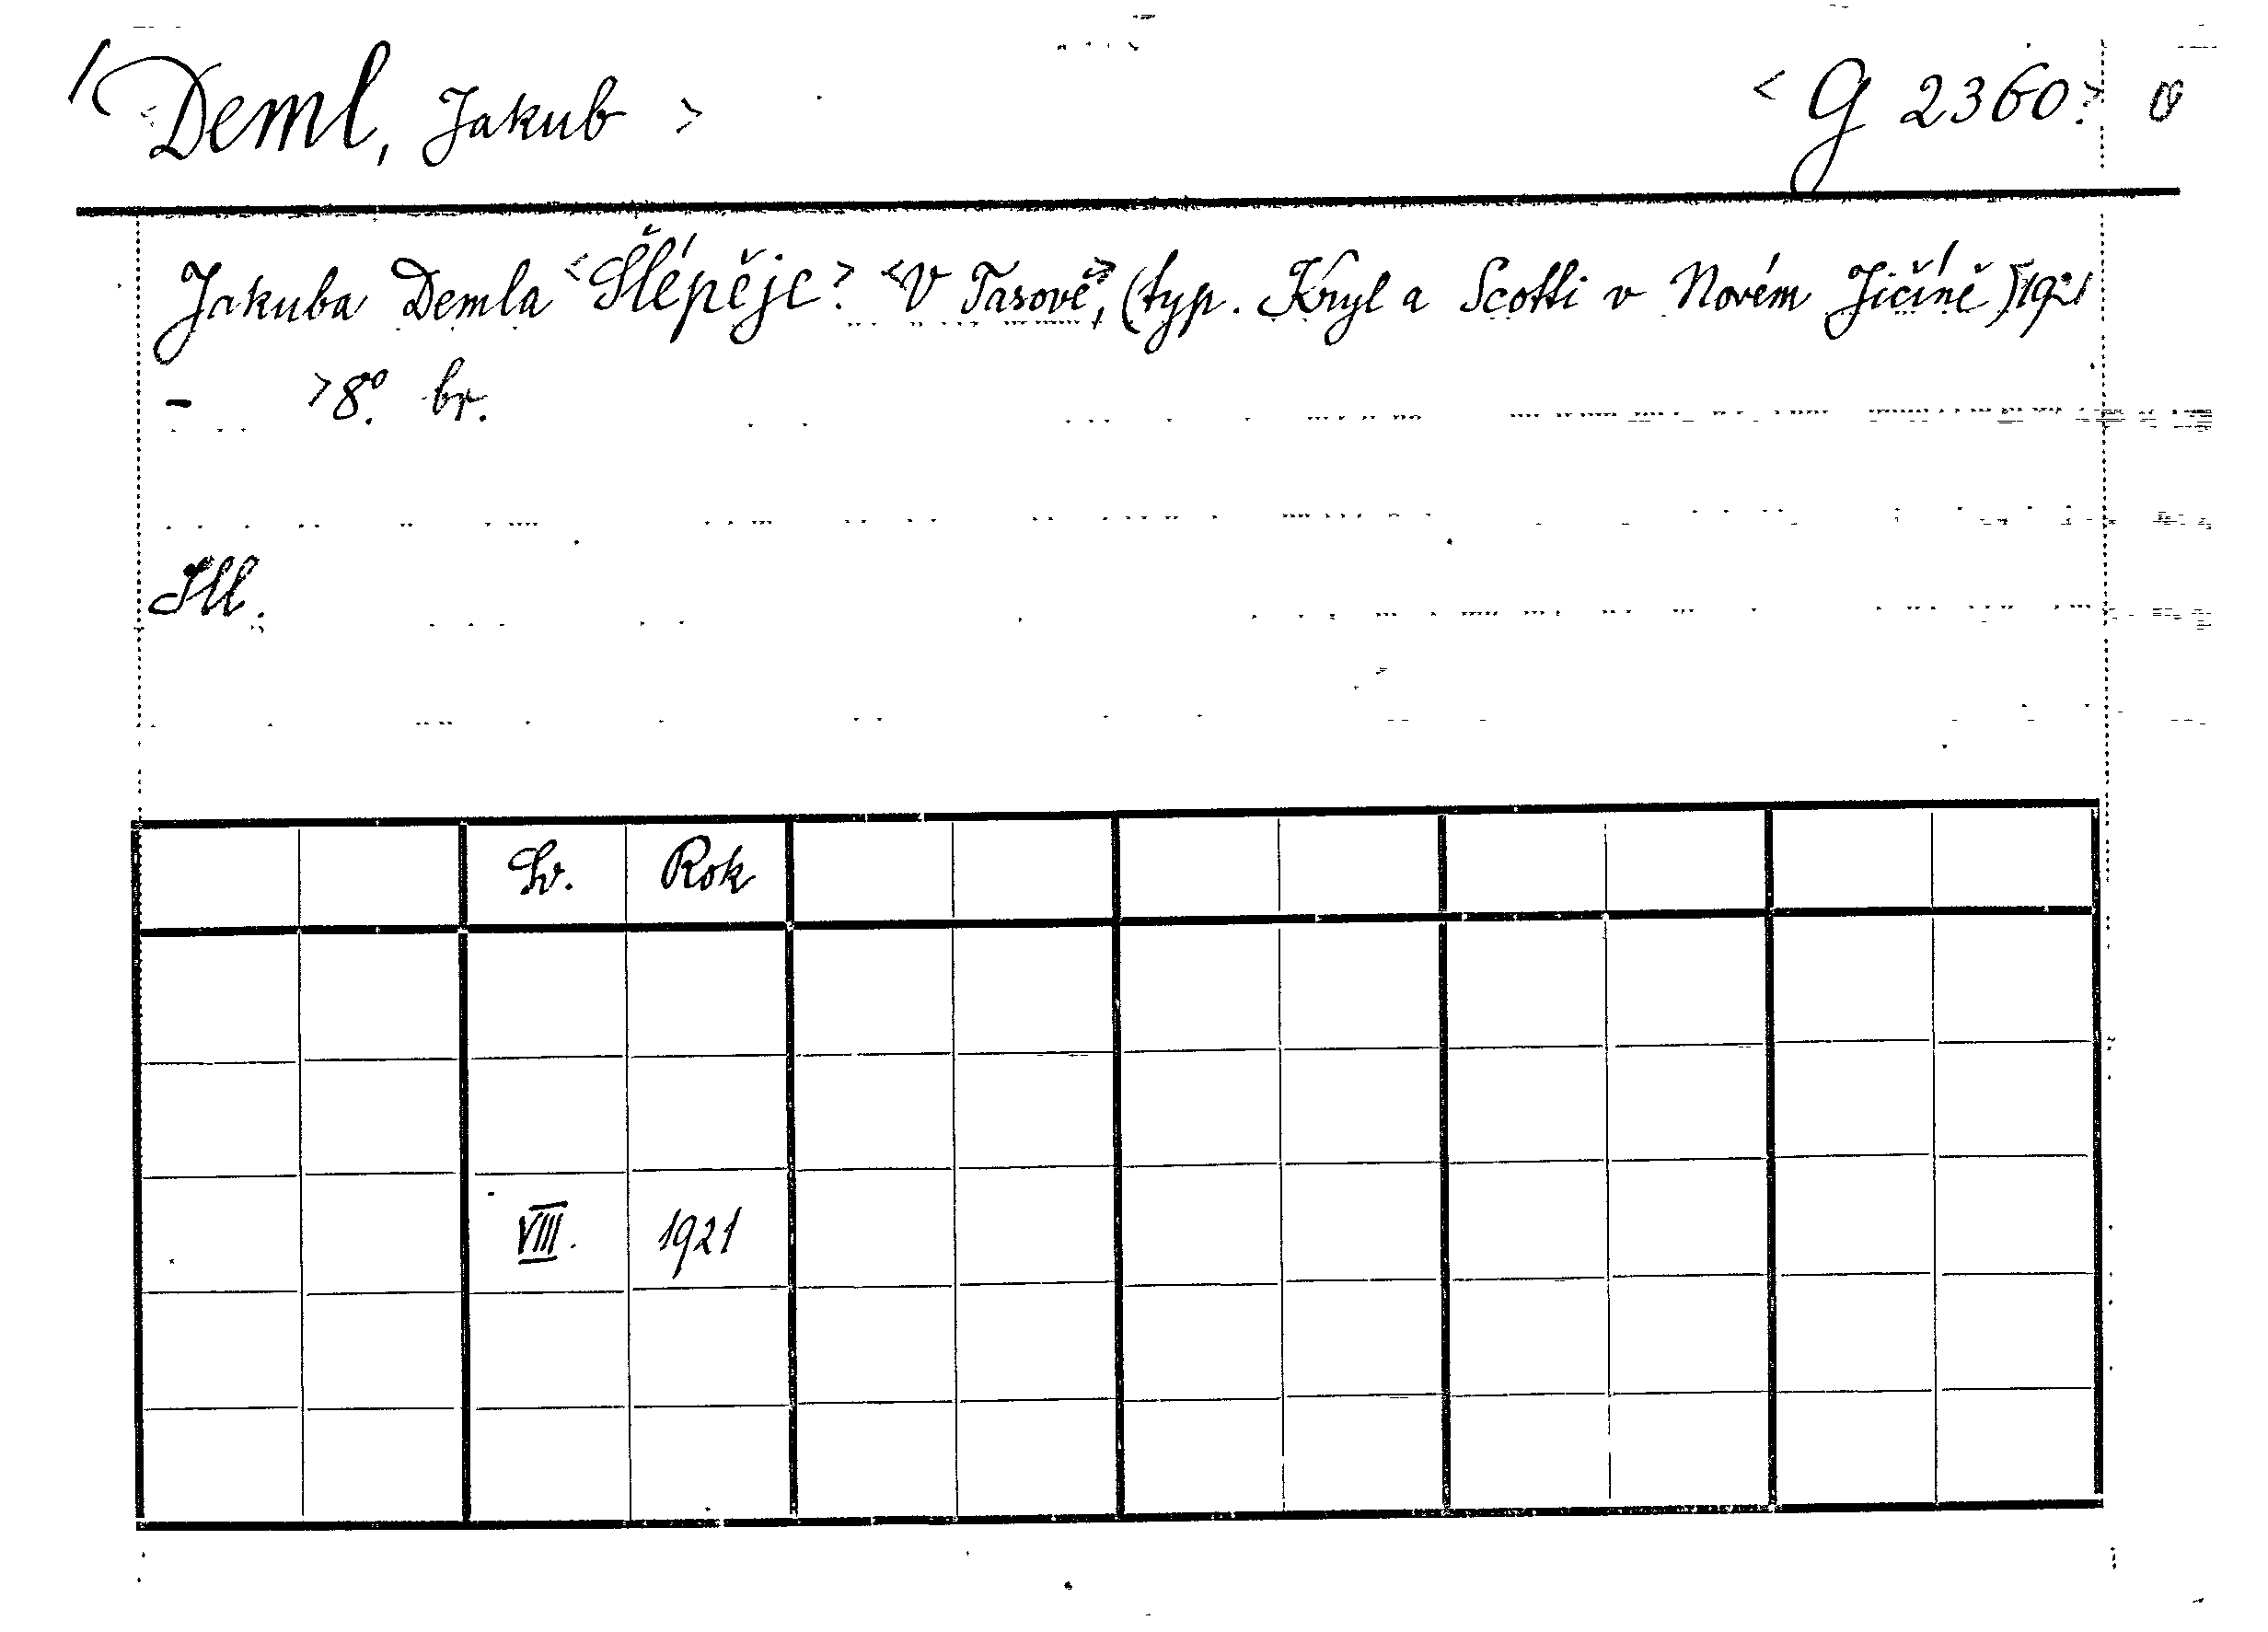 <Deml, Jakub> <G 2360.>
Jakuba Demla <Šlépěje.> <V Tasově>, (typ. Kryl a Scotti v Novém Jičíně) 1921
- >8º. br.
Ill.
Sv. Rok
VIII. 1921